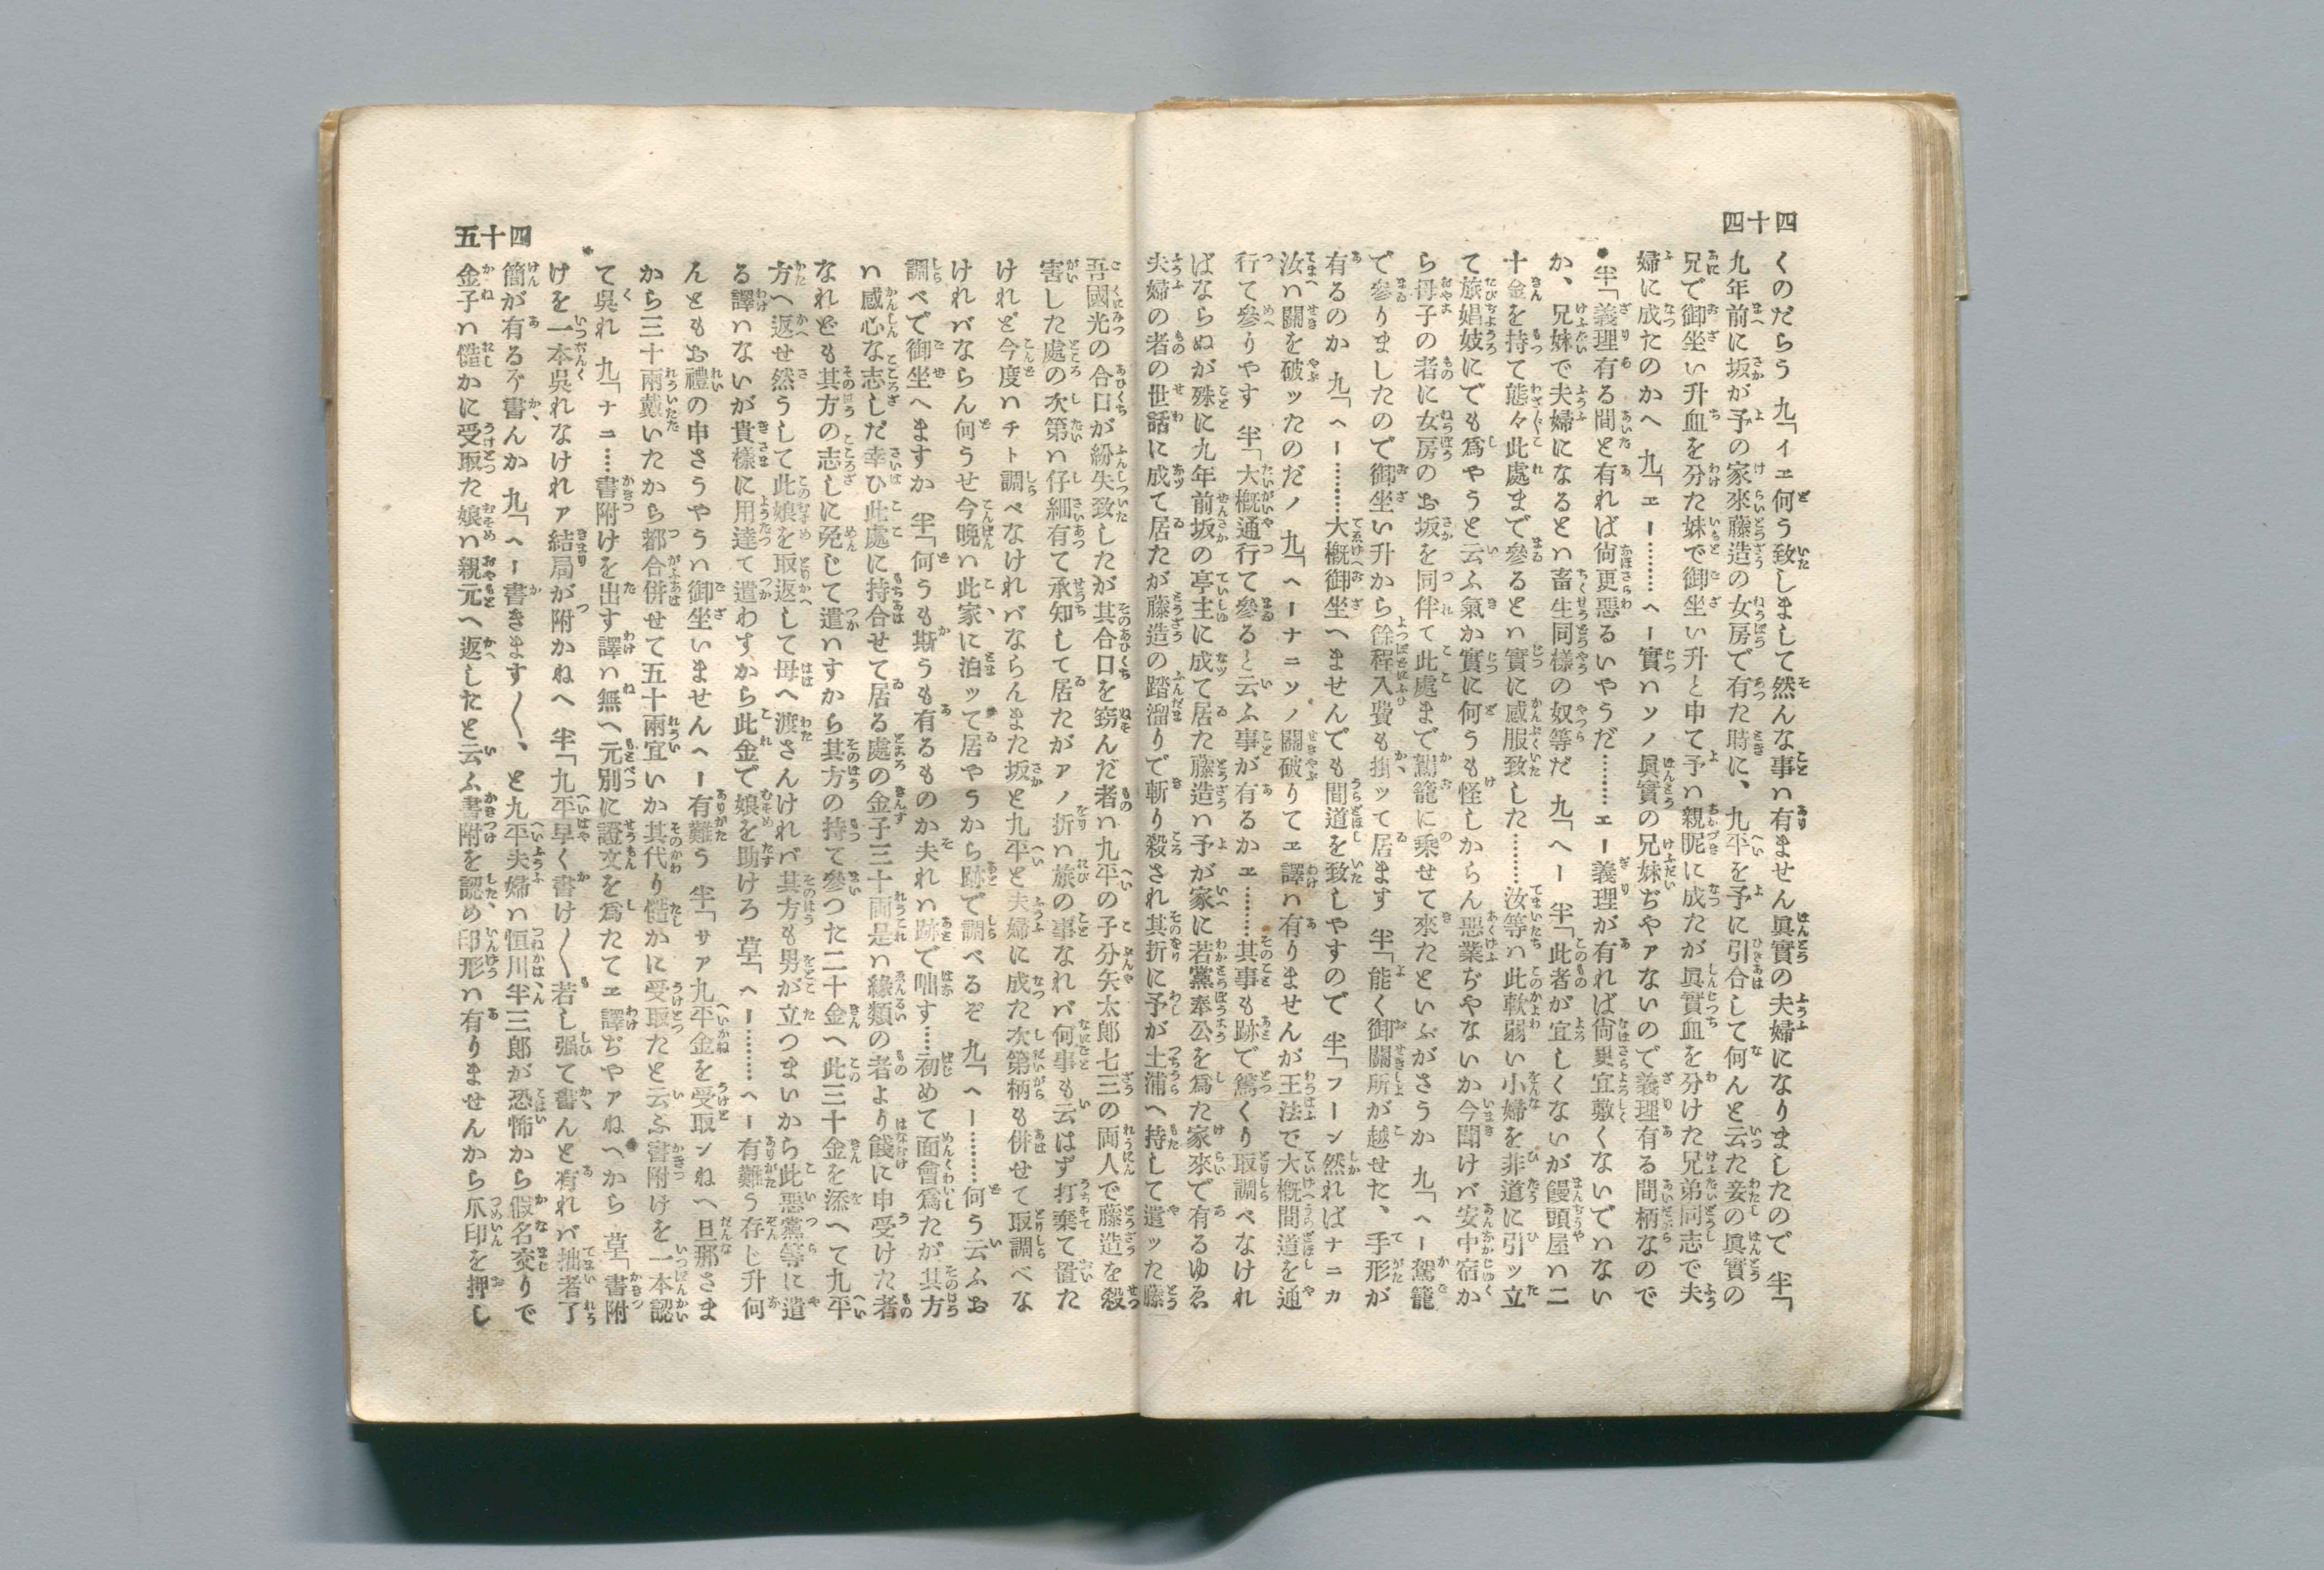 四十四
くのだらう 九「イヱ何う致しまして然んな事ハ有ません眞實の夫婦になりましたので 半「
九年前に坂が予の家來藤造の女房で有た時に、九平を予に引合して何んと云た妾の眞實の
兄で御坐い升血を分た妹で御坐い升と申て予ハ親昵に成たが眞實血を分けた兄弟同志で夫
婦に成たのかへ 九「エー………ヘー實ハソノ眞實の兄妹ぢやアないので義理有る間柄なので
半「義理有る間と有れば尚更惡るいやうだ………エー義理が有れば尚更宜敷くないでハない
か、兄妹で夫婦になるとハ畜生同樣の奴等だ 九「ヘー 半「此者が宜しくないが饅頭屋ハ二
十金を持て態々此處まで參るとハ實に感服致した………汝等ハ此軟弱い小婦を非道に引ッ立
て旅娼妓にでも爲やうと云ふ氣か實に何うも怪しからん惡業ぢやないか今聞けバ安中宿か
ら母子の者に女房のお坂を同伴て此處まで駕籠に乘せて來たといふがさうか 九「ヘー駕籠
で參りましたので御坐い升から餘程入費も掛ッて居ます 半「能く御關所が越せた、手形が
有るのか 九「ヘー………大概御坐へませんでも間道を致しやすので 半「フーン然ればナニカ
汝ハ關を破ッたのだノ 九「ヘーナニソノ關破りてヱ譯ハ有りませんが王法で大概間道を通
行て參りやす 半「大概通行て參ると云ふ事が有るかヱ………其事も跡で篤くり取調べなけれ
ばならぬが殊に九年前坂の亭主に成て居た藤造ハ予が家に若黨奉公を爲た家來で有るゆゑ
夫婦の者の世話に成て居たが藤造の踏溜りで斬り殺され其折に予が土浦へ持して遣ッた藤
吾國光の合口が紛失致したが其合口を竊んだ者ハ九平の子分矢太郎七三の両人で藤造を殺
害した處の次第ハ仔細有て承知して居たがアノ折ハ旅の事なれバ何事も云はず打棄て置た
けれど今度ハチト調べなけれバならんまた坂と九平と夫婦に成た次第柄も併せて取調べな
けれバならん何うせ今晩ハ此家に泊ッて居やうから跡で調べるぞ 九「ヘー………何う云ふお
調べで御坐へますか 半「何うも斯うも有るものか夫れハ跡で咄す……初めて面會爲たが其方
ハ感心な志しだ幸ひ此處に持合せて居る處の金子三十両是ハ緣類の者より餞に申受けた者
なれども其方の志しに免じて遣ハすから其方の持て參つた二十金へ此三十金を添へて九平
方へ返せ然うして此娘を取返して母へ渡さんけれバ其方も男が立つまいから此惡黨等に遣
る譯ハないが貴樣に用達て遣わすから此金で娘を助けろ 草「ヘー………ヘー有難う存じ升何
んともお禮の申さうやうハ御坐いませんヘー有難う 半「サア九平金を受取ンねへ旦那さま
から三十兩戴いたから都合併せて五十兩宜いか其代り慥かに受取たと云ふ書附けを一本認
て呉れ 九「ナニ……書附けを出す譯ハ無へ元別に證文を爲たてヱ譯ぢやアねへから 草「書附
けを一本呉れなけれア結局が附かねへ 半「九平早く書け〳〵若し强て書んと有れバ拙者了
簡が有るゾ書んか 九「ヘー書きます〳〵、と九平夫婦ハ恒川半三郎が恐怖から假名交りで
金子ハ慥かに受取た娘ハ親元へ返したと云ふ書附を認め印形ハ有りませんから爪印を押し
五十四